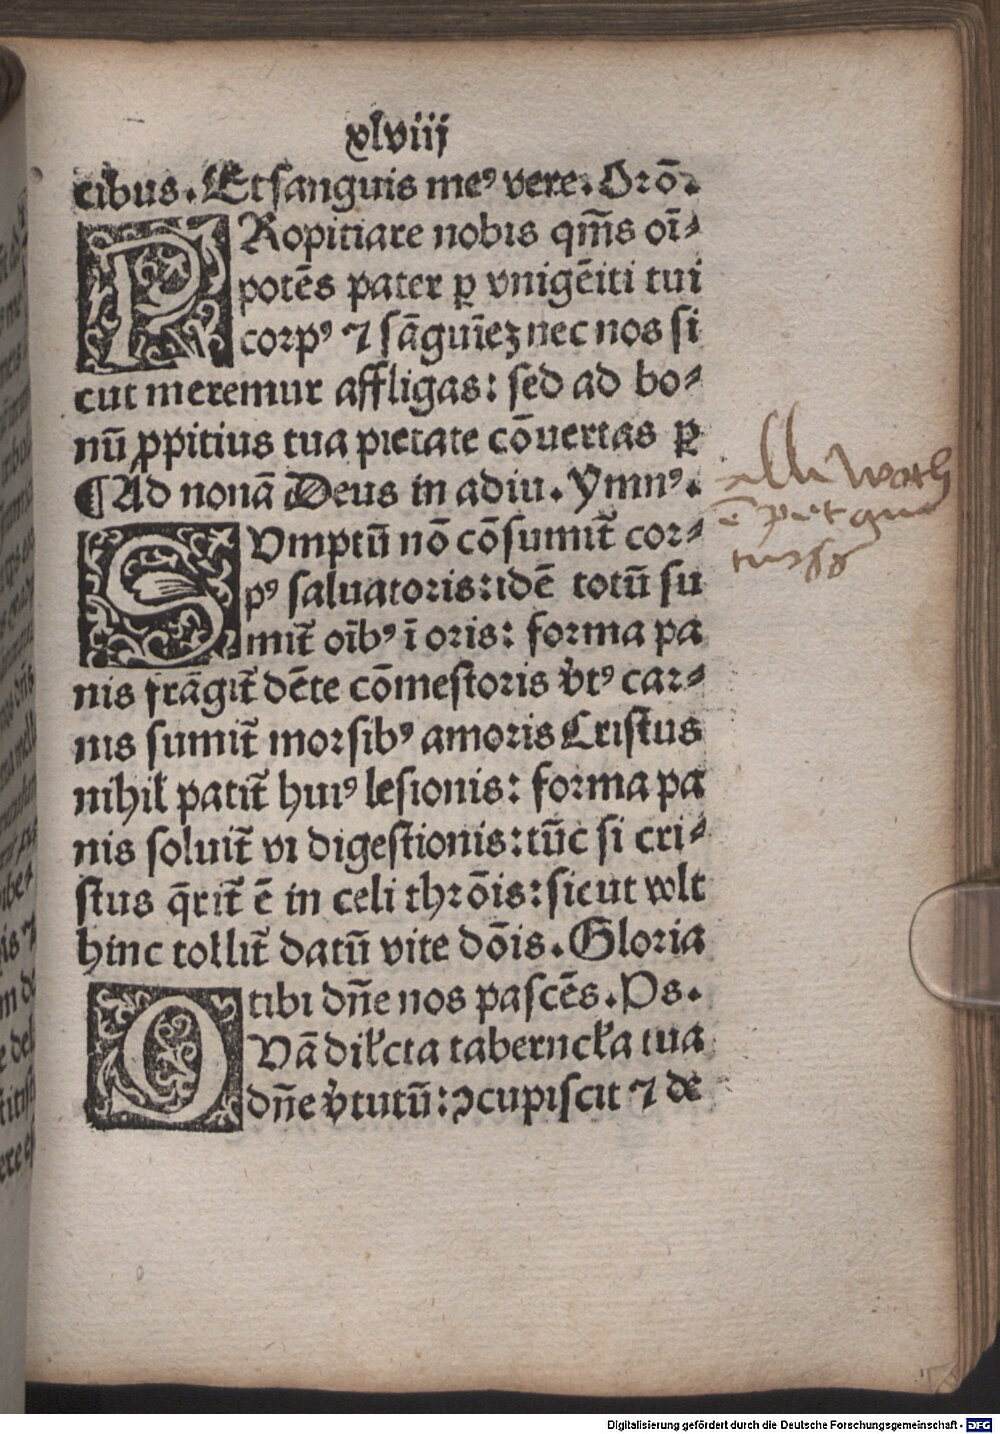 xlviij
cibus. Et sanguis me⁹ vere. Orō.
PRopitiare nobis qm̄s oī-
potēs pater ꝑ vnigēiti tui
corp⁹ ⁊ sāguīeꝫ nec nos si
cut meremur affligas: sed ad bo-
nū ꝓpitius tua pietate cōuertas ꝑ
¶ Ad nonā Deus in adiu. Ymn⁹.
SVmptū nō cōsumit̄ cor-
p⁹ saluatoris: idē totū su
mit̄ oīb⁹ ī oris: forma pa
nis frāgit̄ dēte cōmestoris v̓t⁹ car-
nis sumit̄ morsib⁹ amoris Cristus
nihil̄ patit̄ hui⁹ lesionis: forma pa
nis soluit̄ vi digestionis: tūc si cri-
stus q̄rit̄ ē in celi thrōis: sicut vult
hinc tollit̄ datū vite dōis. Gloria
tibi dn̄e nos pascēs. Ps.
QVā dil̄cta taberncl̄a tua
dn̄e v̓tutū: ꝯcupiscit ⁊ de
Digitalisierung gefördert durch die Deutsche Forschungsgemeinschaft - DFG